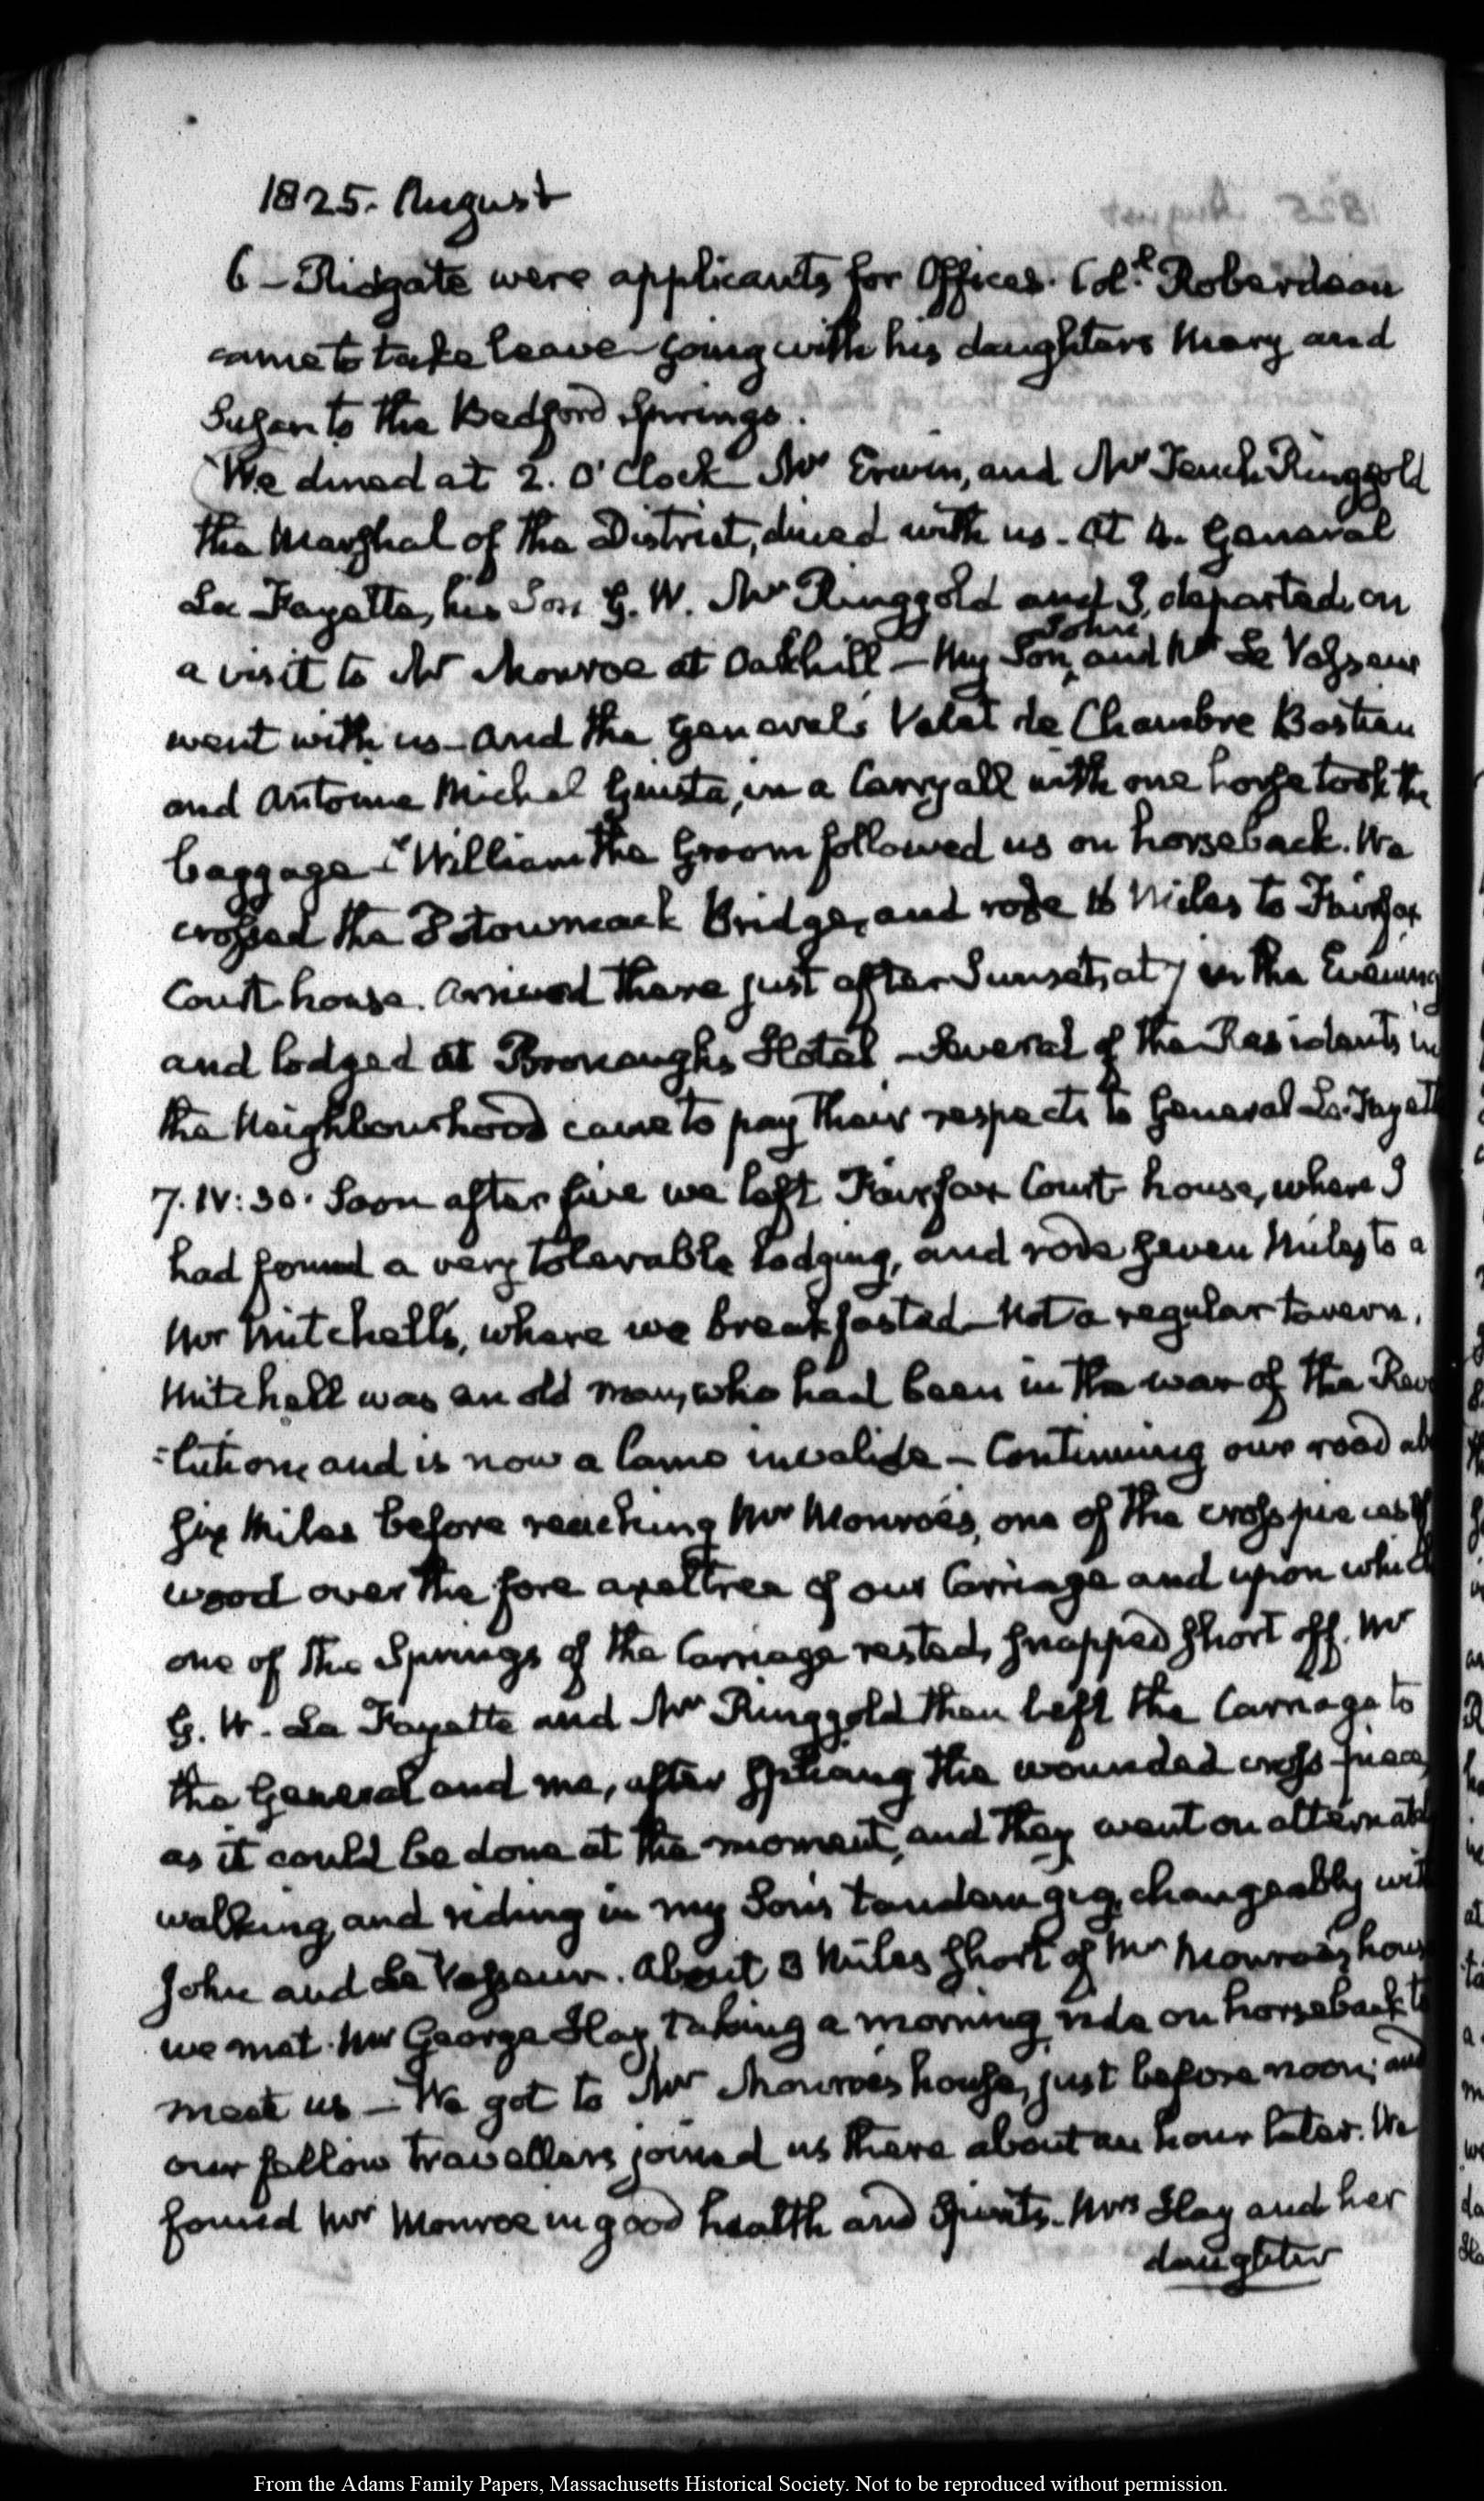 1825. August
6 – Ridgate were applicants for Offices. Coll. Roberdeau
came to take leave going with his daughters Mary and
Susan to the Bedford Springs.
We dined at 2. O'Clock Mr Erwin, and Mr Tench Ringgold
the Marshal of the District, dined with us. At 4. General
La Fayette, his Son G. W. Mr Ringgold and I, departed, on
a visit to Mr Monroe at Oakhill — My Son John, and Mr Le Vasseur
went with us – and the General's Valet de Chambre Bastien
and Antoine Michel Giusta, in a Carryall with one horse took the
baggage – William the Groom followed us on horseback. We
crossed the Potowmack Bridge, and rode 16 Miles to Fairfax
Court-house. Arrived there just after Sunset, at 7 in the Evening
and lodged at Bronaugh's Hotel – Several of the Residents in
the Neighbourhood came to pay their respects to General La Fayett
7. IV: 30. Soon after five we left Fairfax Court-house, where I
had found a very tolerable lodging, and rode seven Miles to a
Mr Mitchell's, where we breakfasted – Not a regular tavern.
Mitchell was an old man, who had been in the war of the Rev
-lution, and is now a lame invalide – Continuing our road ab
six Miles before reaching Mr Monroe's, one of the cross pieces of
wood over the fore axeltree of our Carriage and upon which
one of the Springs of the Carriage rested, snapped short off. Mr
G. W. La Fayette and Mr Ringgold then left the Carriage to
the General and me, after splicing the wounded cross-piece,
as it could be done at the moment, and they went on alternat
walking, and riding in my Son's tandem gig, changeably wit
John and Le Vasseur. About 3 Miles short of Mr Monroe's hous
we met Mr George Hay, taking a morning ride on horseback to
meet us — We got to Mr Monroe's house, just before noon; and
our fellow travellers joined us there about an hour later. We
found Mr Monroe in good health and Spirits. Mrs Hay and her
daughter
From the Adams Family Papers, Massachusetts Historical Society. Not to be reproduced without permission.